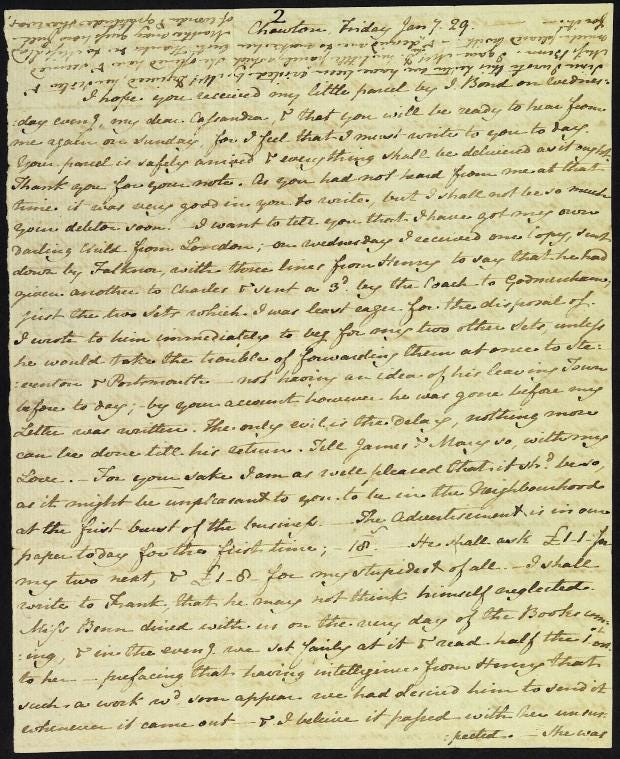 2
Chawton Friday Jany 29.
I hope you received my little parcel by J. Bond on Wednes=
:day eveng, my dear Cassandra, & that you will be ready to hear from
me again on Sunday, for I feel that I must write to you to day.
Your parcel is safely arrived & everything shall be delivered as it ought.
Thank you for your note. As you had not heard from me at that
time it was very good in you to write, but I shall not be so much
your debtor soon. – I want to tell you that I have got my own
darling Child from London; – on Wednesday I received one Copy, sent
down by Falknor, with three lines from Henry to say that he had
given another to Charles & sent a 3d by the Coach to Godmersham;
just the two Sets which I was least eager for the disposal of.
I wrote to him immediately to beg for my two other Sets, unless
he would take the trouble of forwarding them at once to Ste:
:venton & Portsmouth – not having an idea of his leaving Town
before to day; – by your account however he was gone before my
Letter was written. The only evil is the delay, nothing more
can be done till his return. Tell James & Mary so, with my
Love. – For your sake I am as well pleased that it shd be so,
as it might be unpleasant to you to be in the Neighbourhood
at the first burst of the business. – The Advertisement is in our
paper to day for the first time; – 18s – He shall ask £1–1– for
my two next, & £1–8– for my stupidest of all. – I shall
write to Frank, that he may not think himself neglected.
Miss Benn dined with us on the very day of the Books com:
:ing, & in the eveng we set fairly at it & read half the 1st vol.
to her – prefacing that having intelligence from Henry that
such a work wd soon appear we had desired him to send it
whenever it came out – & I believe it passed with her unsus:
:pected. – She was